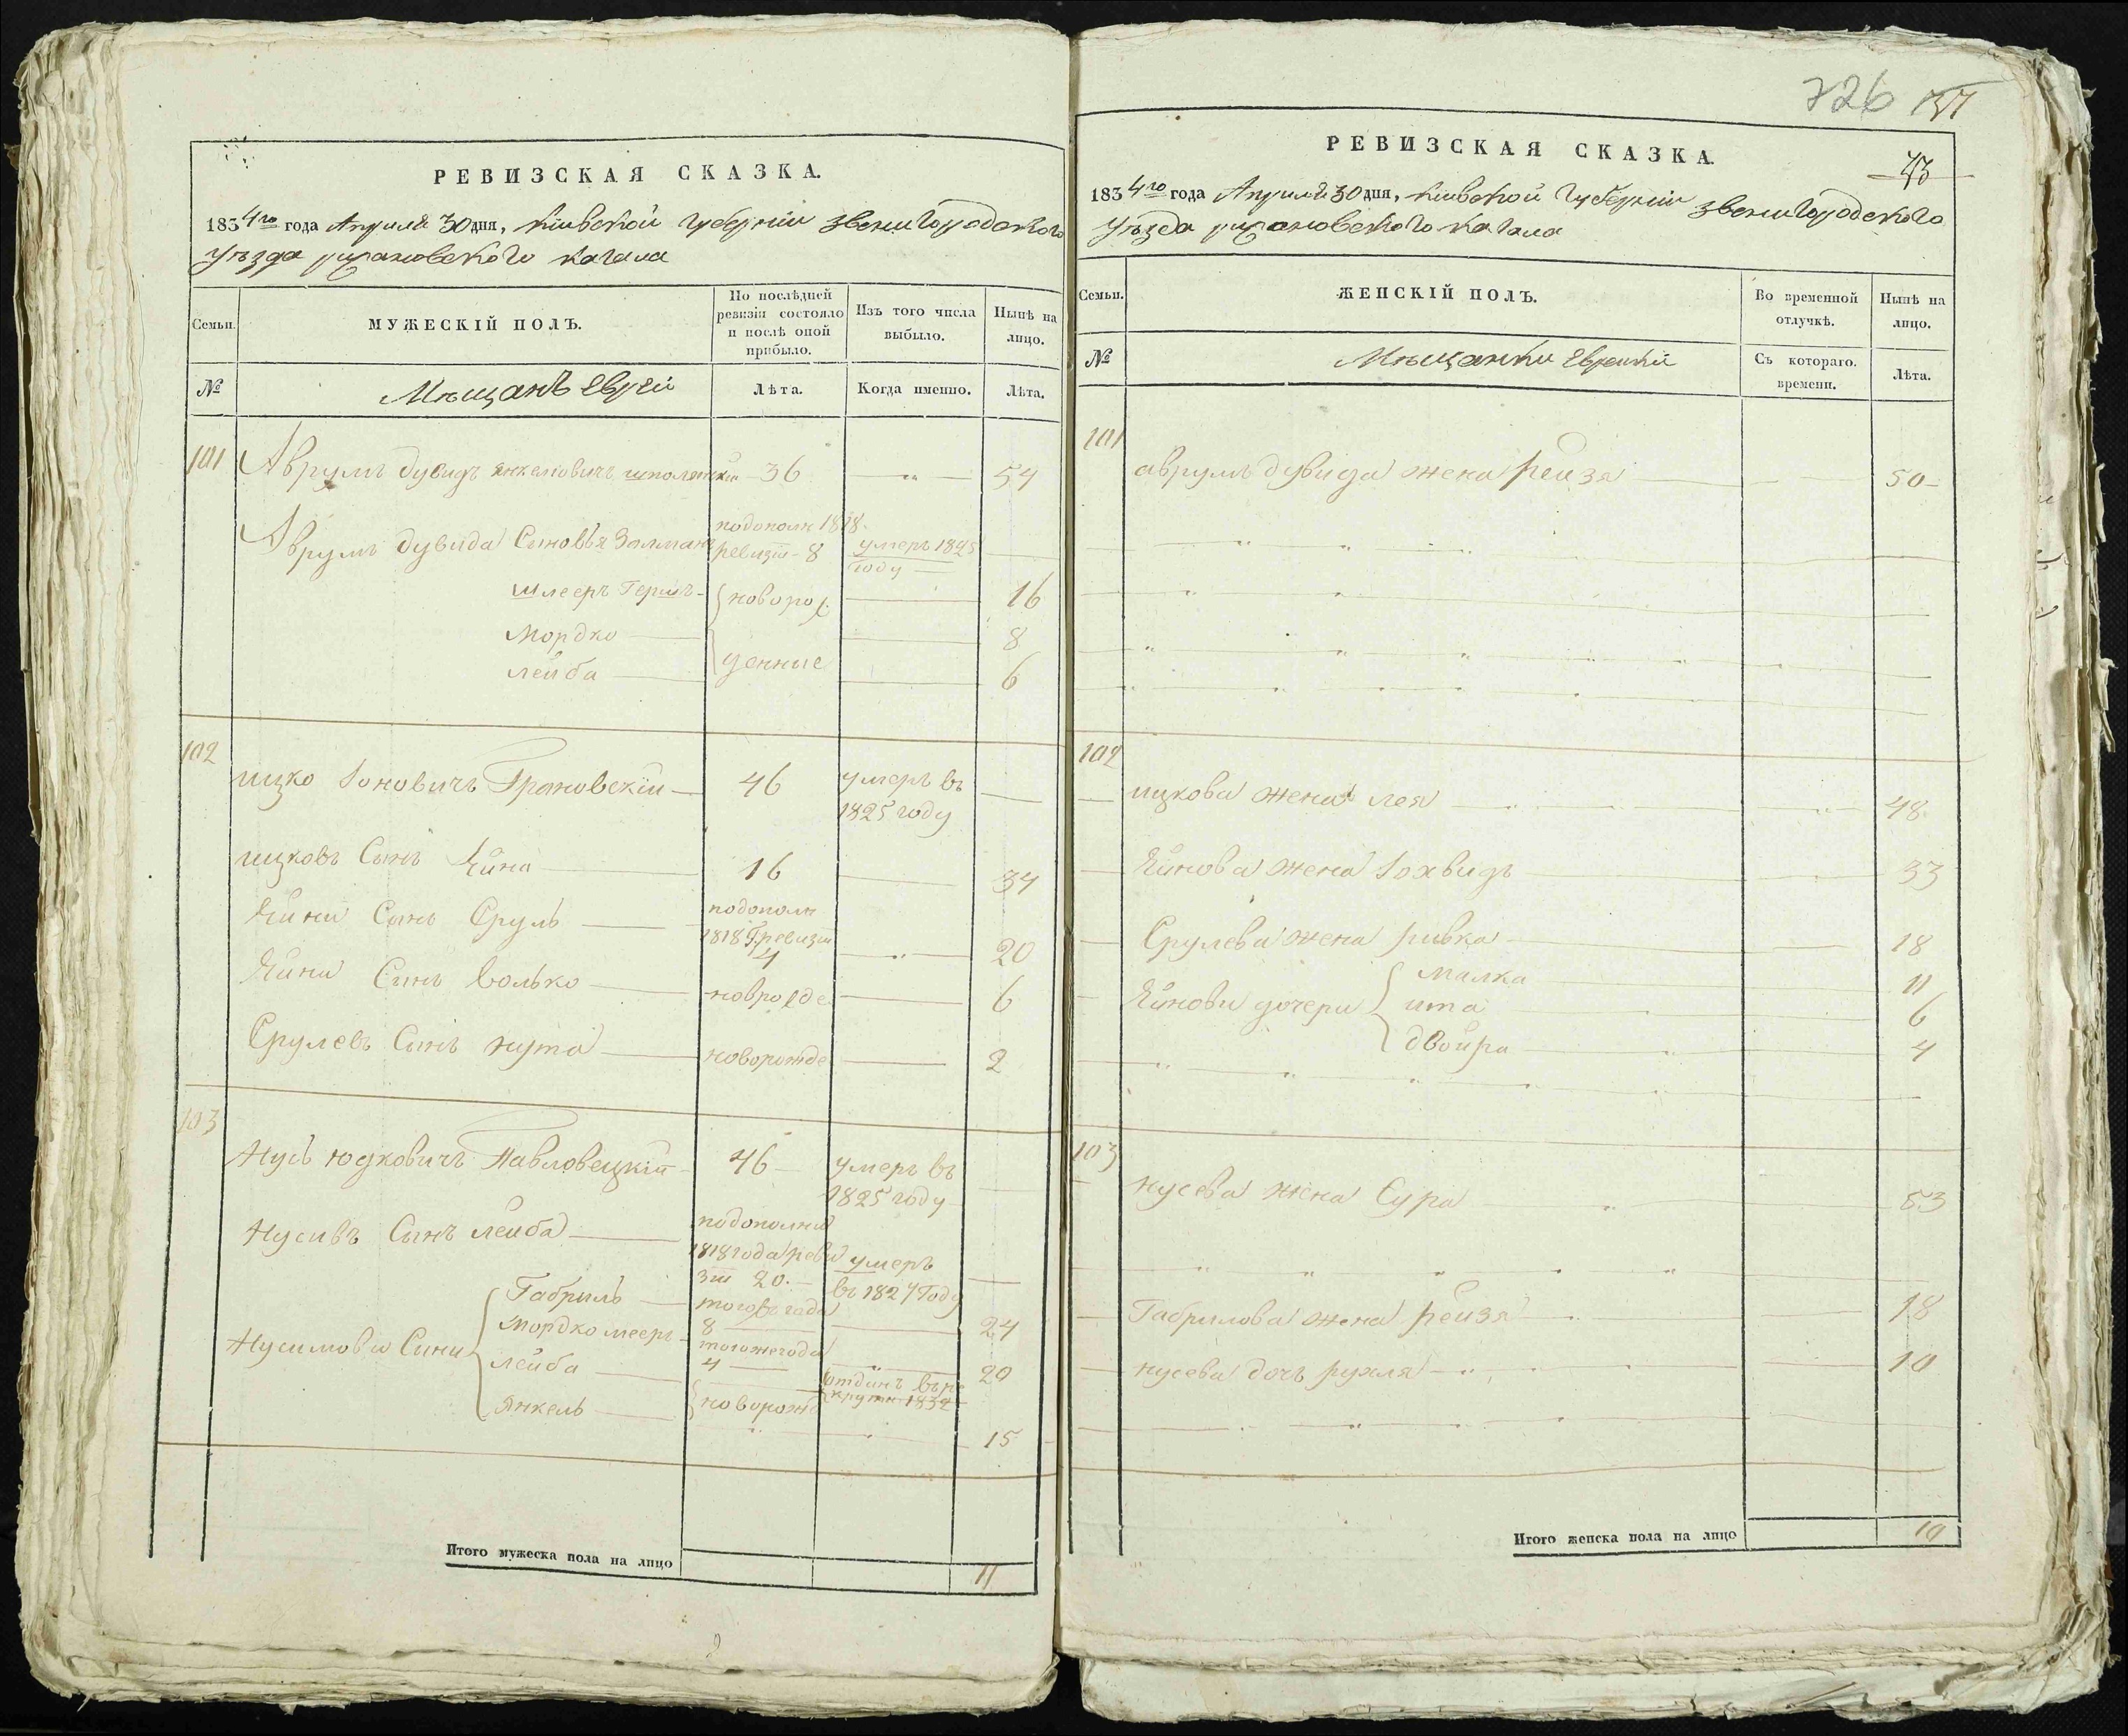 РЕВИЗСКАЯ СКАЗКА.
1834го года Апреля 30 дня, Киевской губернии Звенигородского
уезда рыжановского кагала
Семьи. МУЖЕСКІЙ ПОЛЪ. По послѣдней ревизіи состояло и послѣ оной прибыло. Изъ того числа выбыло. Нынѣ на лицо.
№ Мещанъ Евреи Лѣта. Когда именно. Лѣта.
101 Аврумъ дувидъ янкелювичъ шполянкій 36 — „ — 54
Аврумъ дувида Сыновья Залманъ подополн 1818 ревизіи - 8 умеръ 1825 году
Шлееръ Гершъ - новорож 16
Мордко 8
Лейба денные 6
102
ицко Іоновичъ Грановскій — 46 умеръ въ 1825 году
ицковъ Сынъ Ейна 16 34
Ейны Сынъ Сруль подополн 1818 г ревизіи 4 — „ — 20
Ейны Сынъ Волько новрожде 6
Срулевъ Сынъ нута новорожде 2
103
Нусь юдковичъ Павловецкій 46 умеръ въ 1825 году
Нусивъ Сынъ лейба подополне 1818 года реви зіи 20. умеръ въ 1827 году
Габриль тогожъ года 8 24
Мордко меер тогоже года 4 „ 20
Нусимовы Сыны лейба отданъ въ ре круты 1832
Янкель новорож 15
Итого мужеска пола на лицо 11
726
43
РЕВИЗСКАЯ СКАЗКА.
1834го года Апреля 30 дня, Киевской губернии Звенигородского
уезда рыжановского кагала
Семьи. ЖЕНСКІЙ ПОЛЪ. Во временной отлучкѣ. Нынѣ на лицо.
№ Мещанки Еврейки Съ котораго. времени. Лѣта.
101
аврумъ дувида жена Рейзя 50
102
ицкова жена лея 48
Ейнова жена Іохвидъ 33
Срулева жена ривка 18
Малка 11
Ейновы дочери ита 6
двойра 4
103
нусева жена Сура 53
Габрилова жена рейзя 18
нусева дочь рухля 10
Итого женска пола на лицо 10